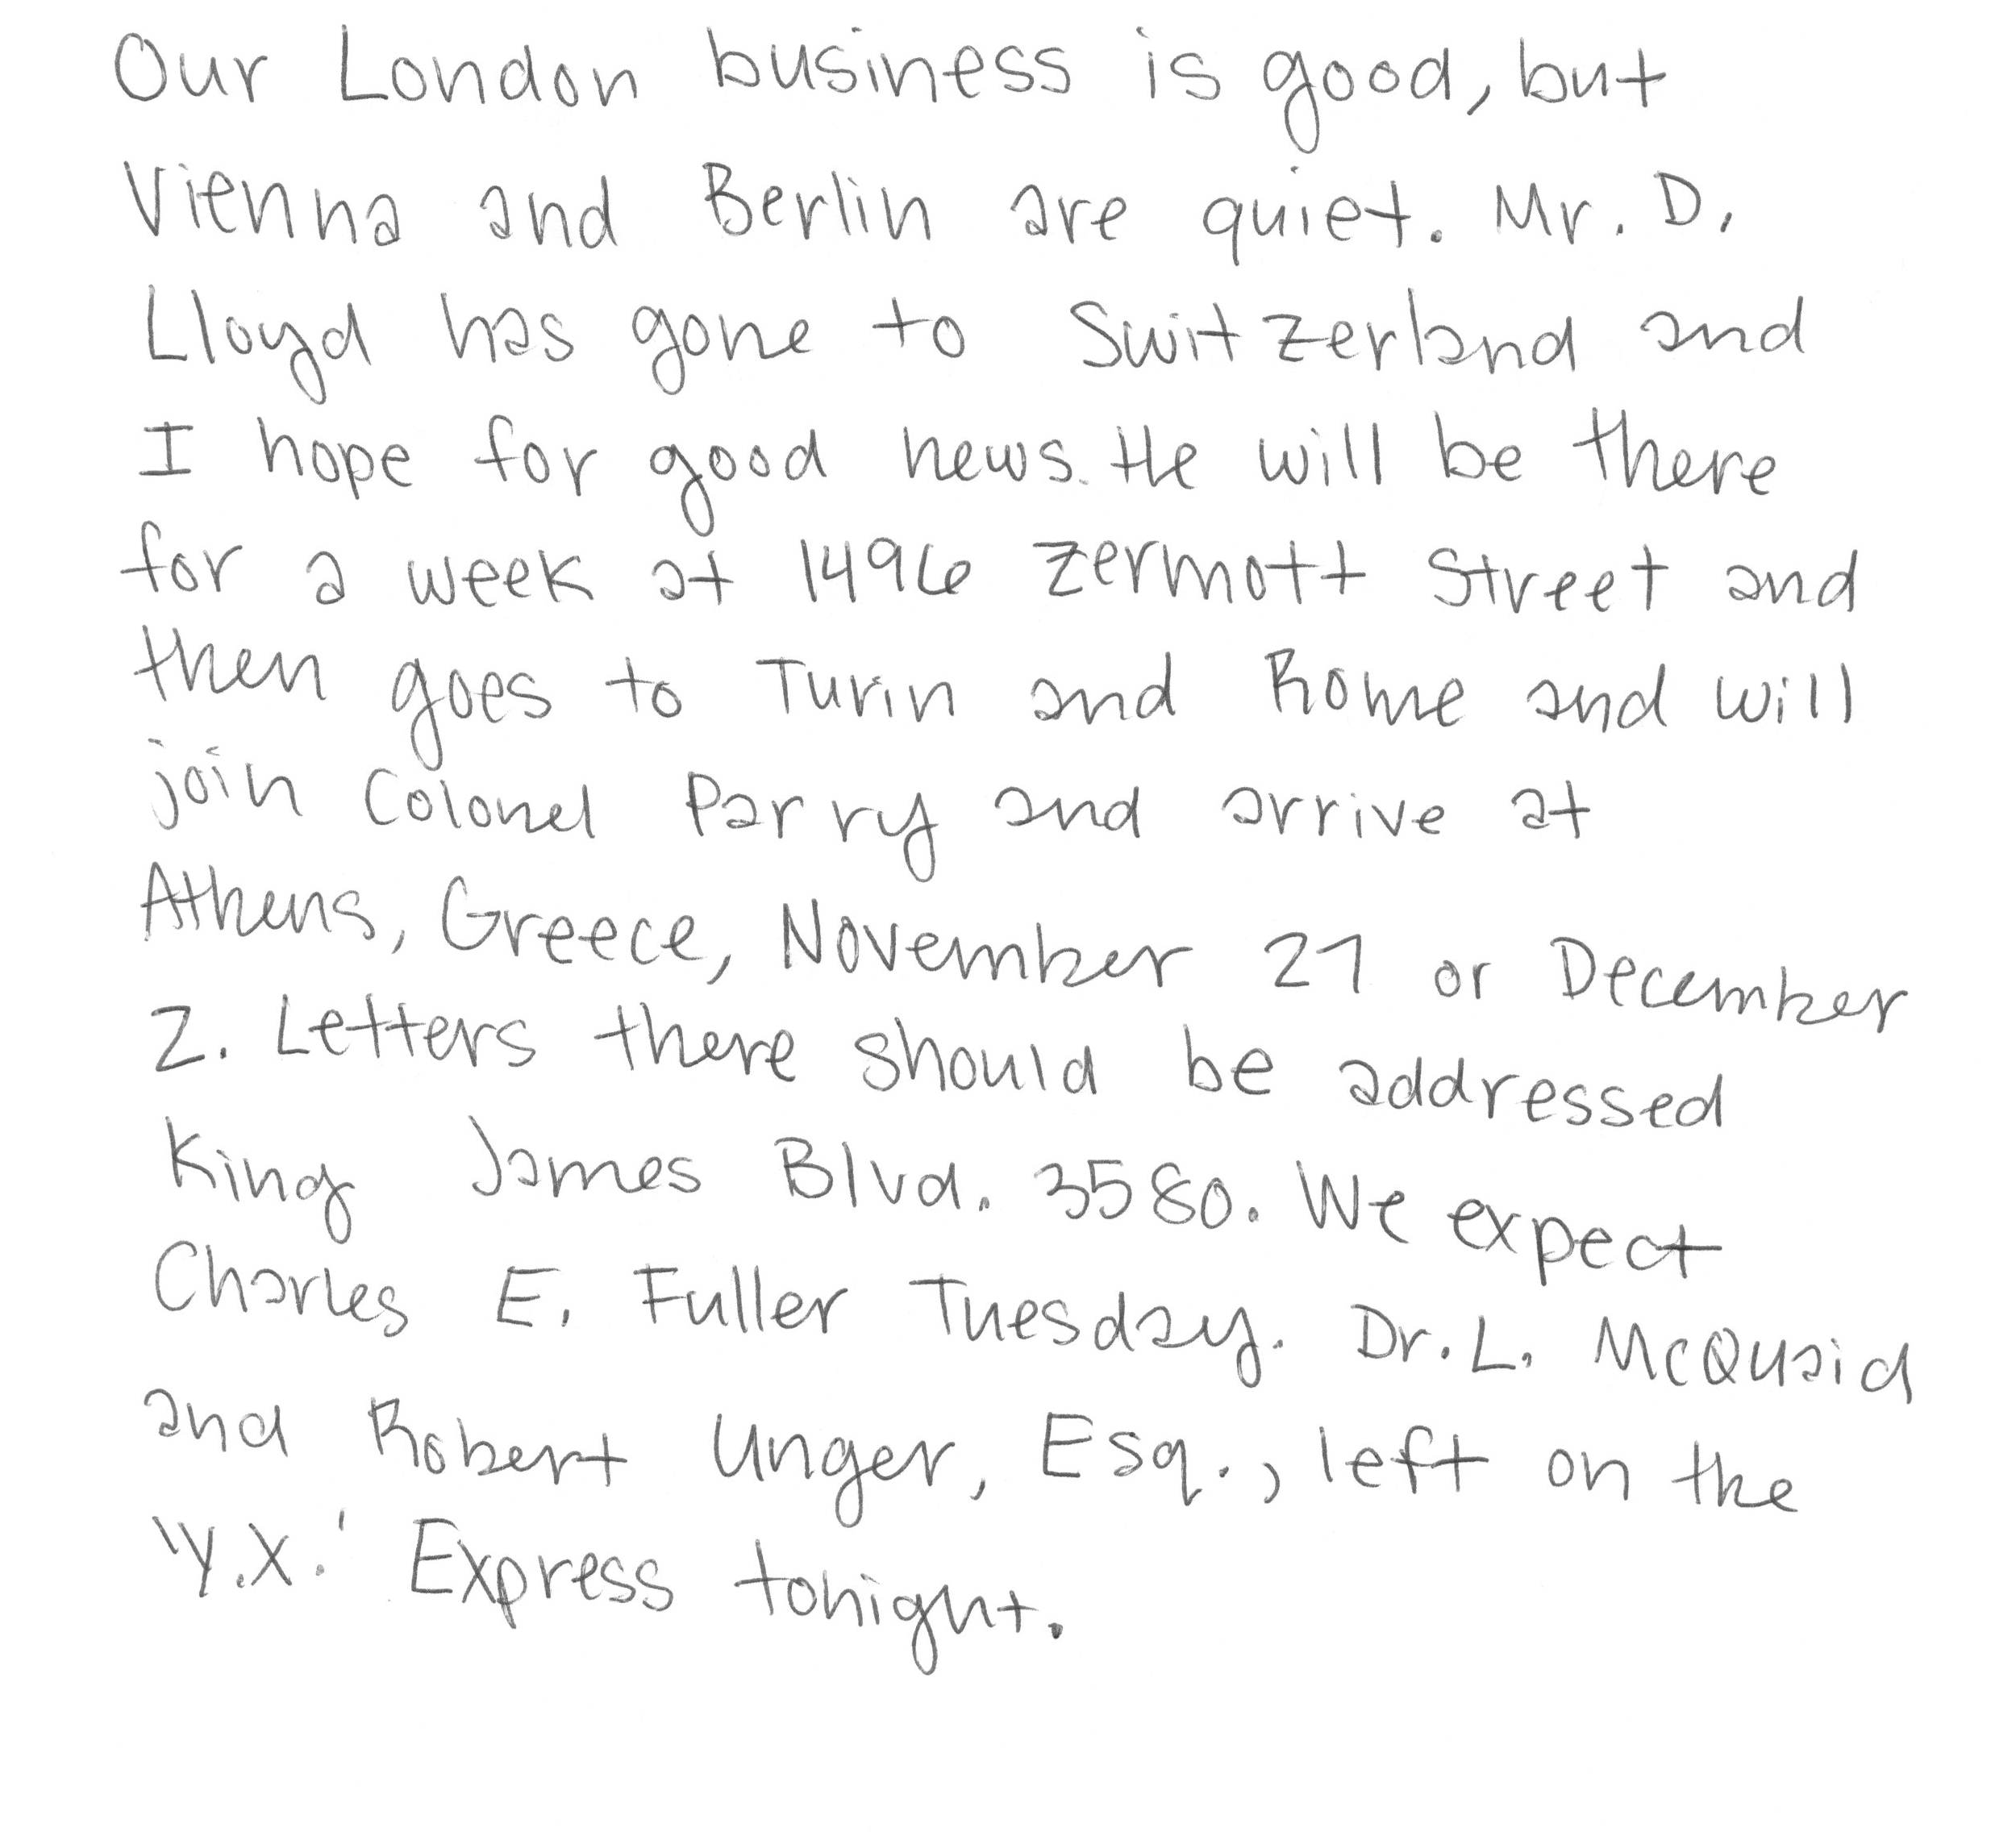 Our London business is good, but
Vienna and Berlin are quiet. Mr. D.
Lloyd has gone to Switzerland and
I hope for good news. He will be there
for a week at 1496 Zermott Street and
then goes to Turin and Rome and will
join Colonel Parry and arrive at
Athens, Greece, November 27 or December
2. Letters there should be addressed
King James Blvd. 3580. We expect
Charles E. Fuller Tuesday. Dr. L. McQuaid
and Robert Unger, Esq., left on the
'Y.X.' Express tonight.